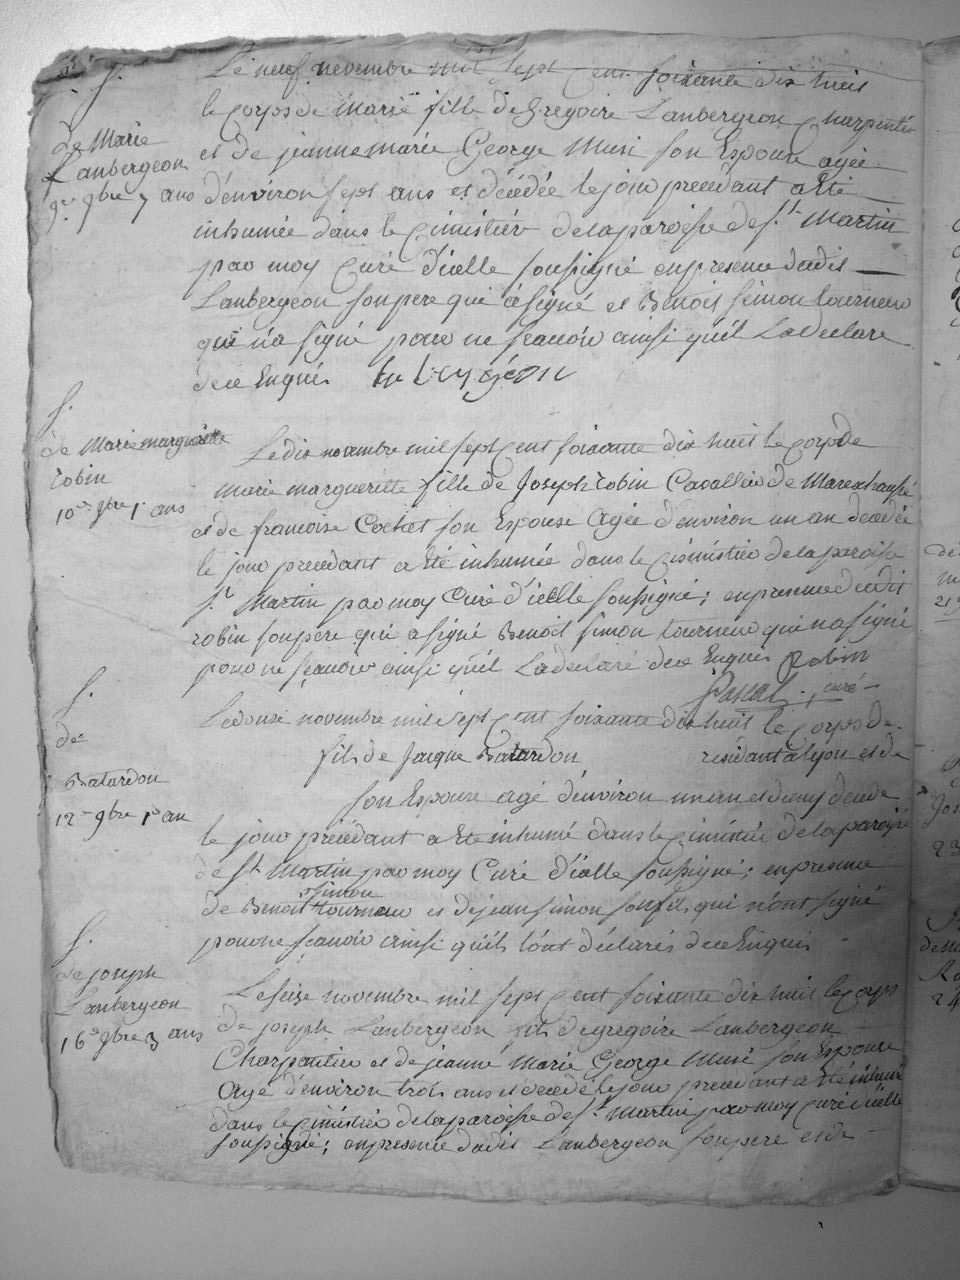 S.
de Marie
Lanbergeon
9e 9bre 7 ans
Le neuf novembre mil sept cent soixante dix huit
le corps de Marie fille de Gregoire Lanbergeon Charpentier
et de jeanne marie George Muni son Epouse agée
d'environ sept ans et décédée le jour precedant a Eté
inhumée dans le cimistiére de la paroisse de St Martin
par moy Curé d'icelle soussigné en presence dudit
Lanbergeon son pere qui a signé et Benoit simon tourneur
qui n'a signé pour ne scavoir ainsi qu'il La declaré
de ce Enquis
S.
de Marie margueritte
robin
10e 9bre 1 ans
Le dix novembre mil sept cent soixante dix huit le corps de
marie margueritte fille de Joseph robin Cavallier de Marechaussé
et de francoise Cochet son Epouse Agée d'environ un an decedée
le jour precedant a Eté inhumée dans le cimistiére de la paroisse
St Martin par moy Curé d'icelle soussigné; en presence du dit
robin son pere qui a signé Benoit simon tourneur qui n'a signé
pour ne scavoir ainsi qu'il La declaré de ce Enquis Robin
curé
S.
de
Batardon
12e 9bre 1 an
Le douze novembre mil sept cent soixante dix huit le corps de
fils de Jacque Batardon residant a Lyon et de
son Epouse agé d'environ un an et demy decede
le jour précédant a Eté inhumé dans le cimitiére de la paroisse
de St Martin par moy Curé d'icelle soussigné; en presence
simon
de Benoit tourneur et de jean simon son fils qui n'ont signé
pour ne scavoir ainsi qu'ils l'ont déclarés de ce Enquis
S.
de joseph
Lanbergeon
16e 9bre 3 ans
Le seize novembre mil sept cent soixante dix huit le corps
de joseph Lanbergeon fils de gregoire Lanbergeon
Charpentier et de jeanne Marie George Muni son Epouse
Agé d'environ trois ans et decedé le jour precedant a Eté inhumé
dans le cimistiére de la paroisse de St Martin par moy curé d'icelle
soussigné; en presence dudit Lanbergeon son pere et de